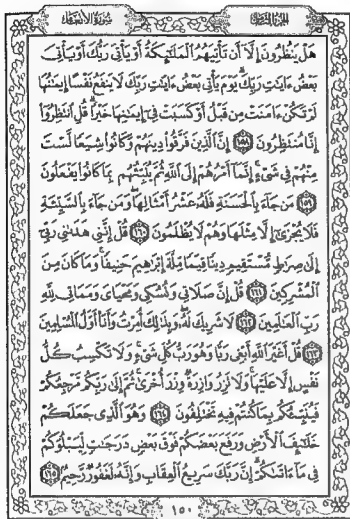 الجزء الثامن
سورة الأنعام
هَلْ يَنظُرُونَ إِلَّا أَن تَأْتِيَهُمُ الْمَلَٰٓئِكَةُ أَوْ يَأْتِىَ رَبُّكَ أَوْ يَأْتِىَ
بَعْضُ ءَايَٰتِ رَبِّكَ يَوْمَ يَأْتِى بَعْضُ ءَايَٰتِ رَبِّكَ لَا يَنفَعُ نَفْسًا إِيمَٰنُهَا
لَمْ تَكُنْ ءَامَنَتْ مِن قَبْلُ أَوْ كَسَبَتْ فِىٓ إِيمَٰنِهَا خَيْرًا قُلِ انتَظِرُوٓا
إِنَّا مُنتَظِرُونَ ١٥٨ إِنَّ الَّذِينَ فَرَّقُوا دِينَهُمْ وَكَانُوا شِيَعًا لَّسْتَ
مِنْهُمْ فِى شَىْءٍ إِنَّمَآ أَمْرُهُمْ إِلَى اللَّهِ ثُمَّ يُنَبِّئُهُم بِمَا كَانُوا يَفْعَلُونَ
١٥٩ مَن جَآءَ بِالْحَسَنَةِ فَلَهُ عَشْرُ أَمْثَالِهَا وَمَن جَآءَ بِالسَّيِّئَةِ
فَلَا يُجْزَىٰٓ إِلَّا مِثْلَهَا وَهُمْ لَا يُظْلَمُونَ ١٦٠ قُلْ إِنَّنِى هَدَىٰنِى رَبِّىٓ
إِلَىٰ صِرَٰطٍ مُّسْتَقِيمٍ دِينًا قِيَمًا مِّلَّةَ إِبْرَٰهِيمَ حَنِيفًا وَمَا كَانَ مِنَ
الْمُشْرِكِينَ ١٦١ قُلْ إِنَّ صَلَاتِى وَنُسُكِى وَمَحْيَاىَ وَمَمَاتِى لِلَّهِ
رَبِّ الْعَٰلَمِينَ ١٦٢ لَا شَرِيكَ لَهُ وَبِذَٰلِكَ أُمِرْتُ وَأَنَا أَوَّلُ الْمُسْلِمِينَ
١٦٣ قُلْ أَغَيْرَ اللَّهِ أَبْغِى رَبًّا وَهُوَ رَبُّ كُلِّ شَىْءٍ وَلَا تَكْسِبُ كُلُّ
نَفْسٍ إِلَّا عَلَيْهَا وَلَا تَزِرُ وَازِرَةٌ وِزْرَ أُخْرَىٰ ثُمَّ إِلَىٰ رَبِّكُم مَّرْجِعُكُمْ
فَيُنَبِّئُكُم بِمَا كُنتُمْ فِيهِ تَخْتَلِفُونَ ١٦٤ وَهُوَ الَّذِى جَعَلَكُمْ
خَلَٰٓئِفَ الْأَرْضِ وَرَفَعَ بَعْضَكُمْ فَوْقَ بَعْضٍ دَرَجَٰتٍ لِّيَبْلُوَكُمْ
فِى مَآ ءَاتَىٰكُمْ إِنَّ رَبَّكَ سَرِيعُ الْعِقَابِ وَإِنَّهُ لَغَفُورٌ رَّحِيمٌ ١٦٥
١٥٠